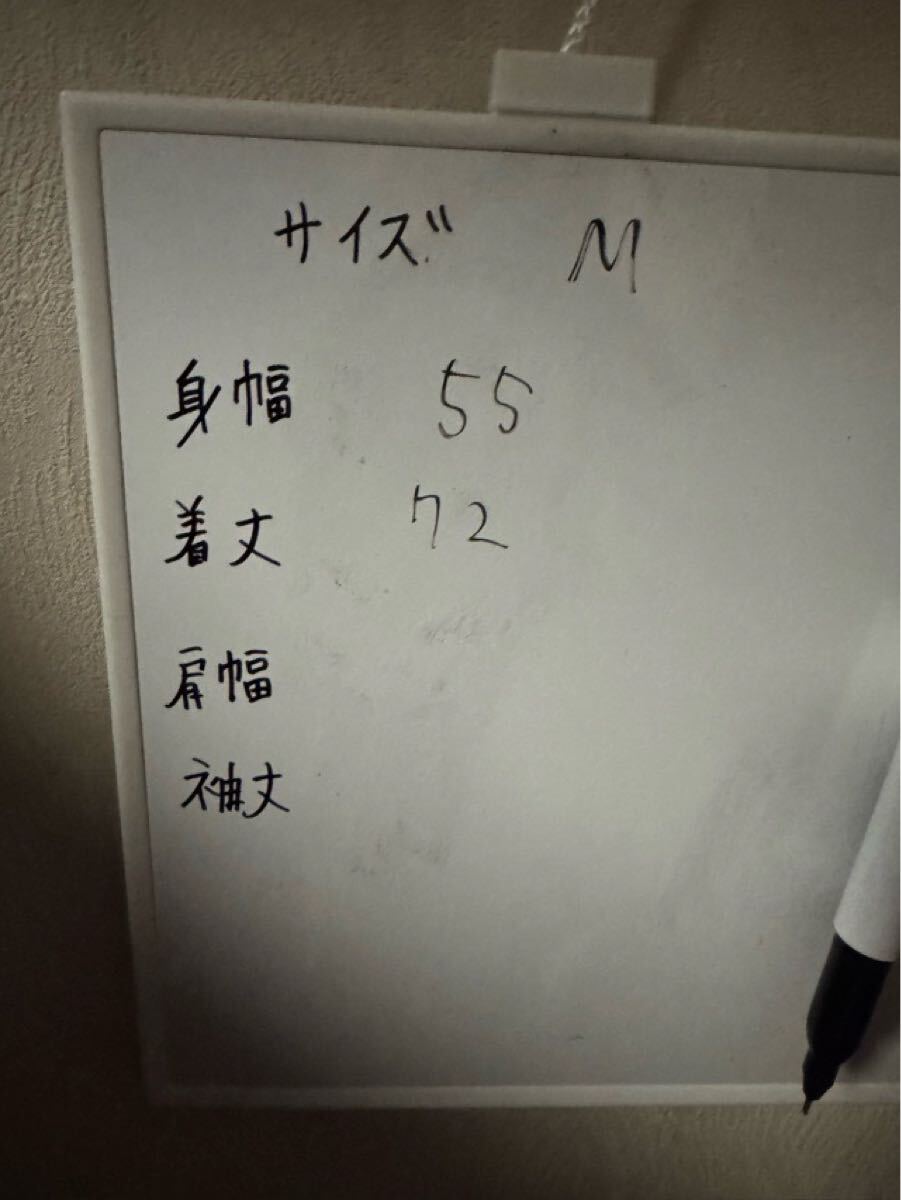 サイズ M
身幅 55
着丈 72
肩幅
袖丈